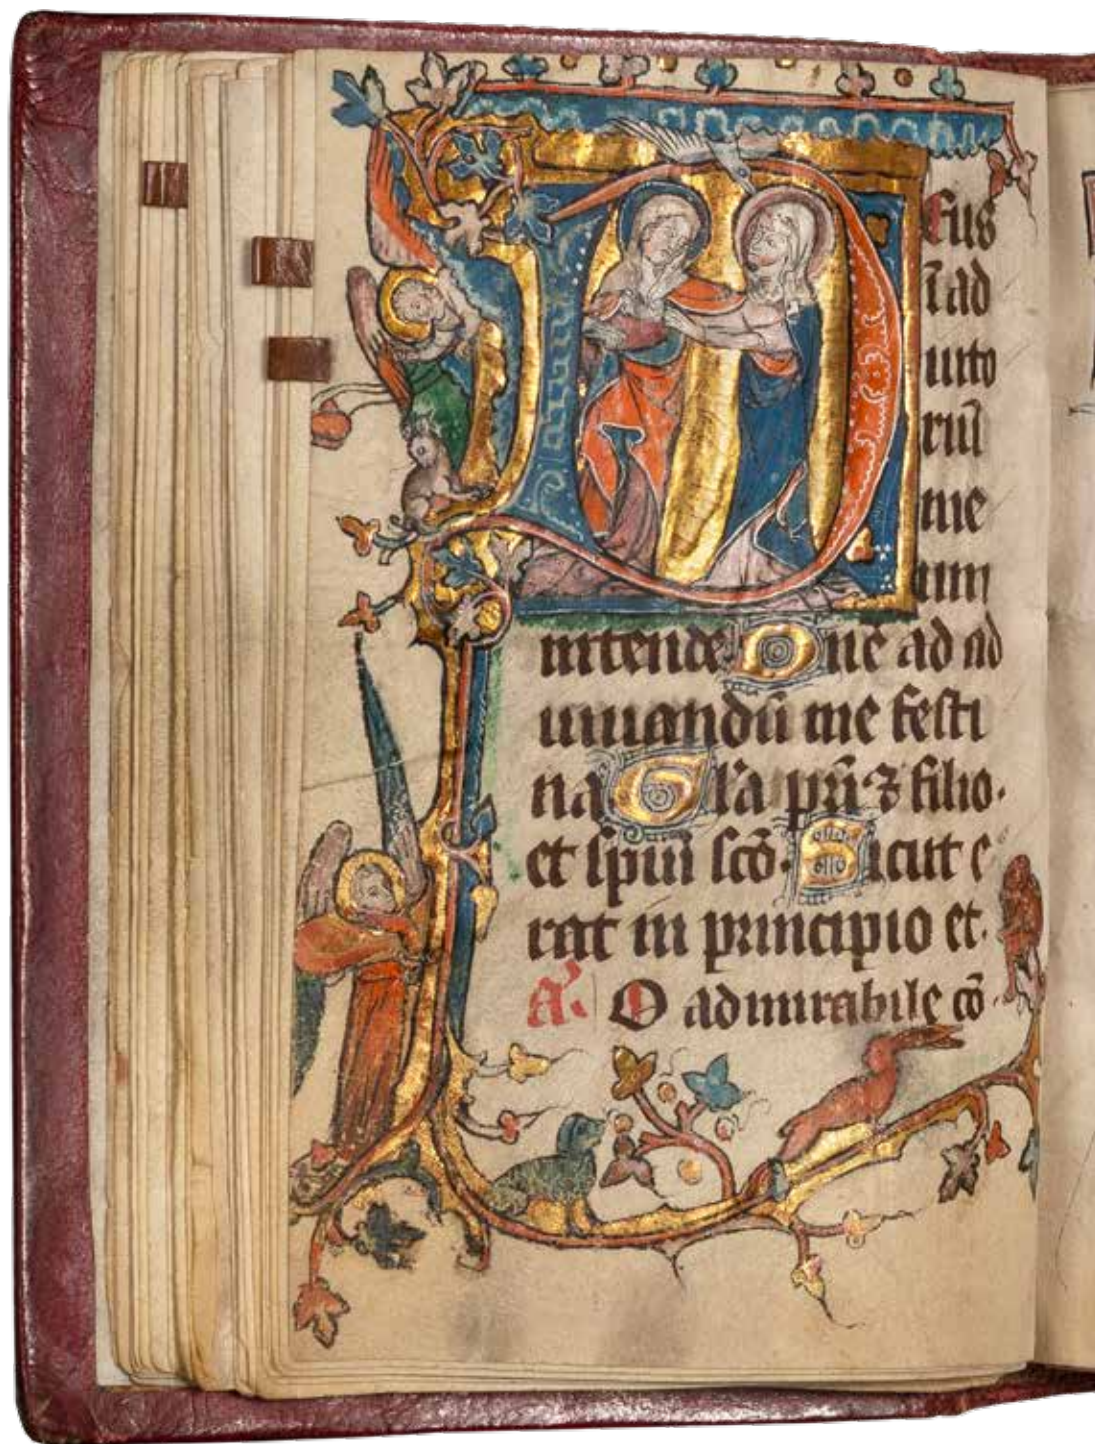 Deus
ī ad
iuto
riū
me
um
intende Dn̄e ad ad
iuuandū me festi
na Gl'a pr̄i ⁊ filio.
et sp̄ui scō. Sicut e
rat in principio et.
A. O admirabile cō